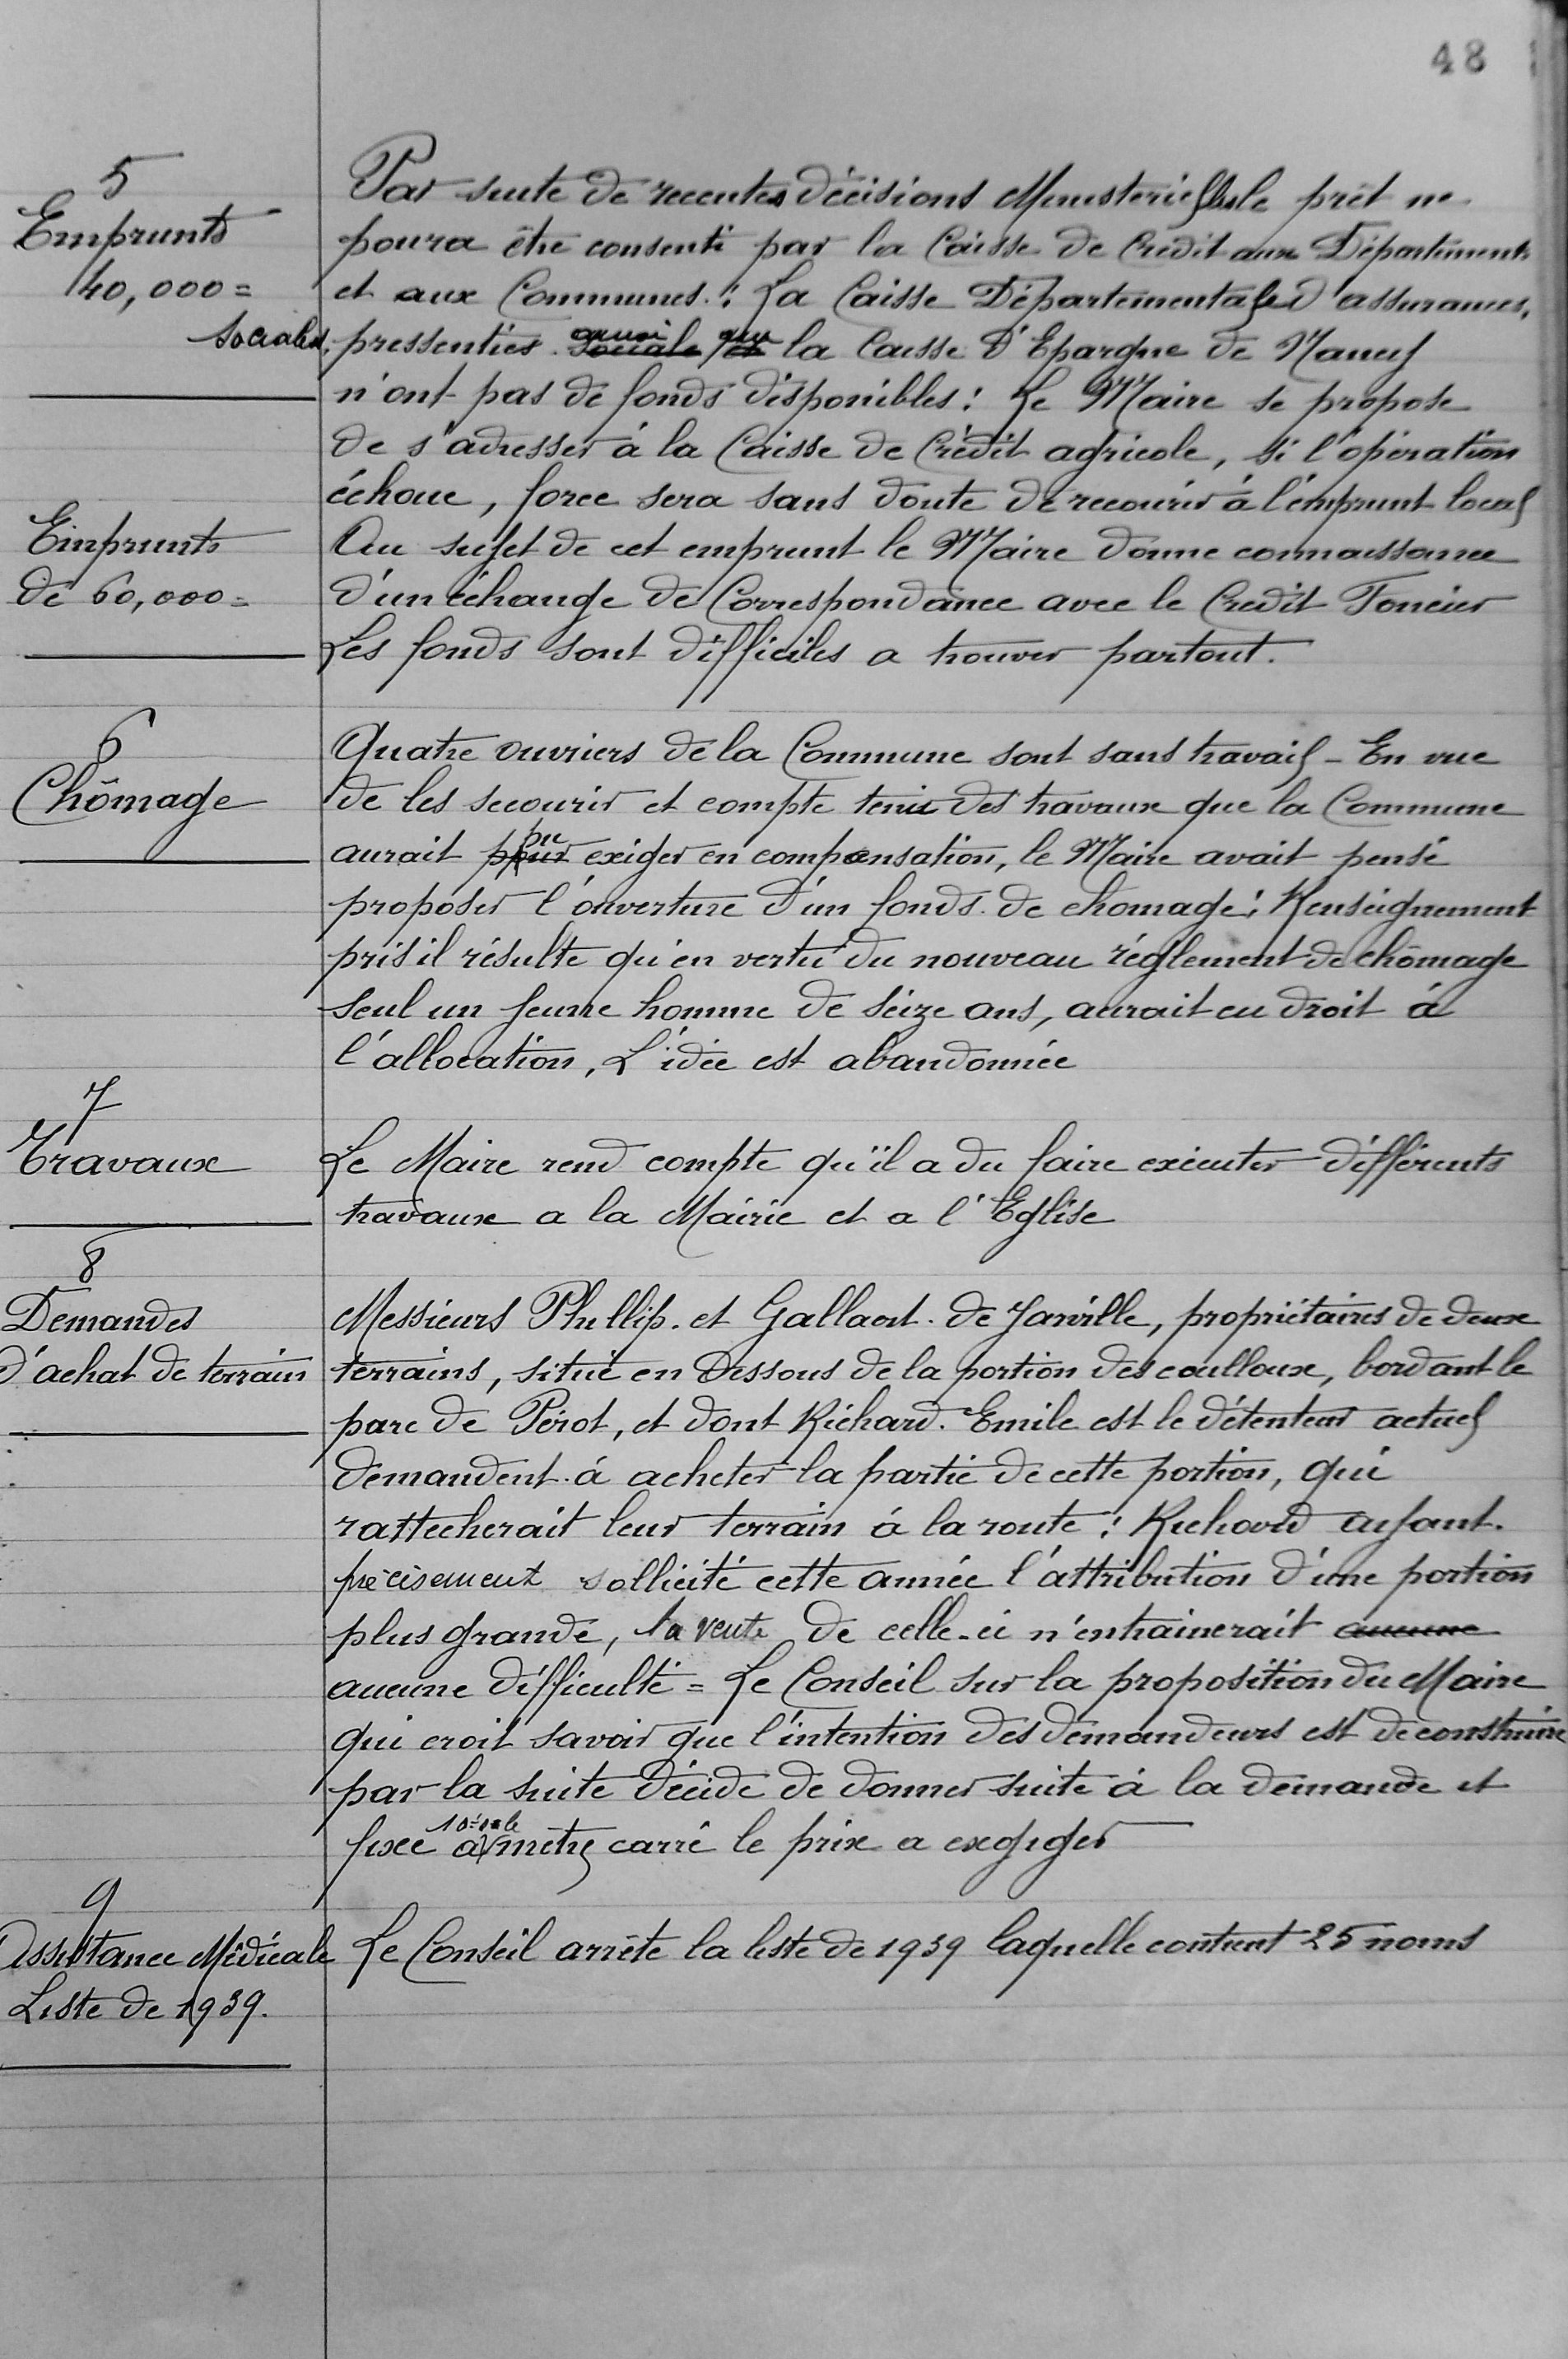 48
5
Emprunts
40,000=
Par suite de recentes décisions Ministerielles le prêt ne
poura être consenti par la Caisse de Crédit aux Départements
et aux Communes. : La Caisse Départementale d'assurances,
sociales, pressenties sociale et la Caisse d'Epargne de Nancy
n'ont pas de fonds disponibles : Le Maire se propose
de s'adresser à la Caisse de Crédit agricole, si l'opération
échoue, force sera sans doute de recourir à l'emprunt local
Emprunts
de 60,000=
Au sujet de cet emprunt le Maire donne connaissance
d'un échange de Correspondance avec le Credit Foncier
Les fonds sont difficiles a trouver partout.
6
Chômage
Quatre ouvriers de la Commune sont sans travail - En vue
de les secourir et compte tenu des travaux que la Commune
aurait pu exiger en compensation, le Maire avait pensé
proposer l'ouverture d'un fonds de chomage : Renseignement
pris il résulte qu'en vertu du nouveau réglement de chômage
seul un jeune homme de seize ans, aurait eu droit à
l'allocation, L'idée est abandonnée
7
Travaux
Le Maire rend compte qu'il a du faire exécuter différents
travaux a la Mairie et a l'Eglise
8
Demandes
d'achat de terrain
Messieurs Phullip. et Gallaert. de Jarville, propriétaires de deux
terrains, situé en dessous de la portion des coulloux, bordant le
parc de Pérot, et dont Richard. Emile est le détenteur actuel
demandent à acheter la partie de cette portion, qui
rattecherait leur terrain à la route : Richard ayant.
précisement sollicité cette année l'attribution d'une portion
plus grande, la vente de celle-ci n'entrainerait aucune
aucune difficulté = Le Conseil sur la proposition du Maire
qui croit savoir que l'intention des demandeurs est de construire
par la suite décide de donner suite à la demande et
fixe à 10= le mètre carré le prix a exgiger
9
Assistance Médicale
Liste de 1939.
Le Conseil arrête la liste de 1939 laquelle contient 25 noms